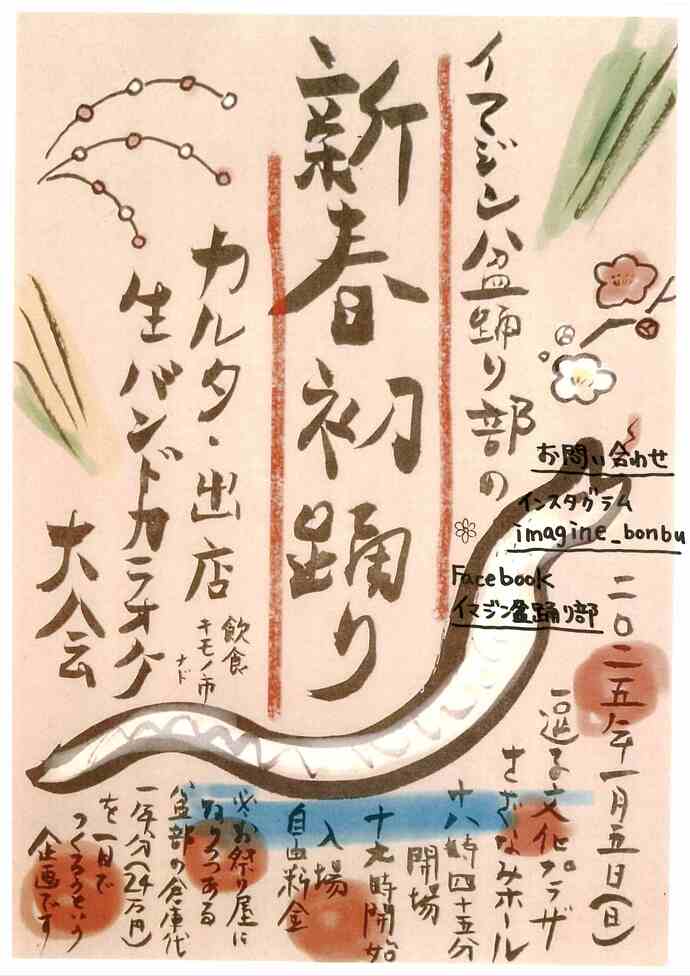 イマジン盆踊り部の
新春初踊り
カルタ・出店
飲食
キモノ市
ナド
生バンドカラオケ
大会
お問い合わせ
インスタグラム
imagine_bonbu
Facebook
イマジン盆踊り部
二〇二五年一月五日(日)
逗子文化プラザ
さざなみホール
十八時四十五分
開場
十九時開始
入場
自由料金
お祭り屋に
なりつつある
盆部の倉庫代
一年分(24万円)
を一日で
つくろうという
企画です